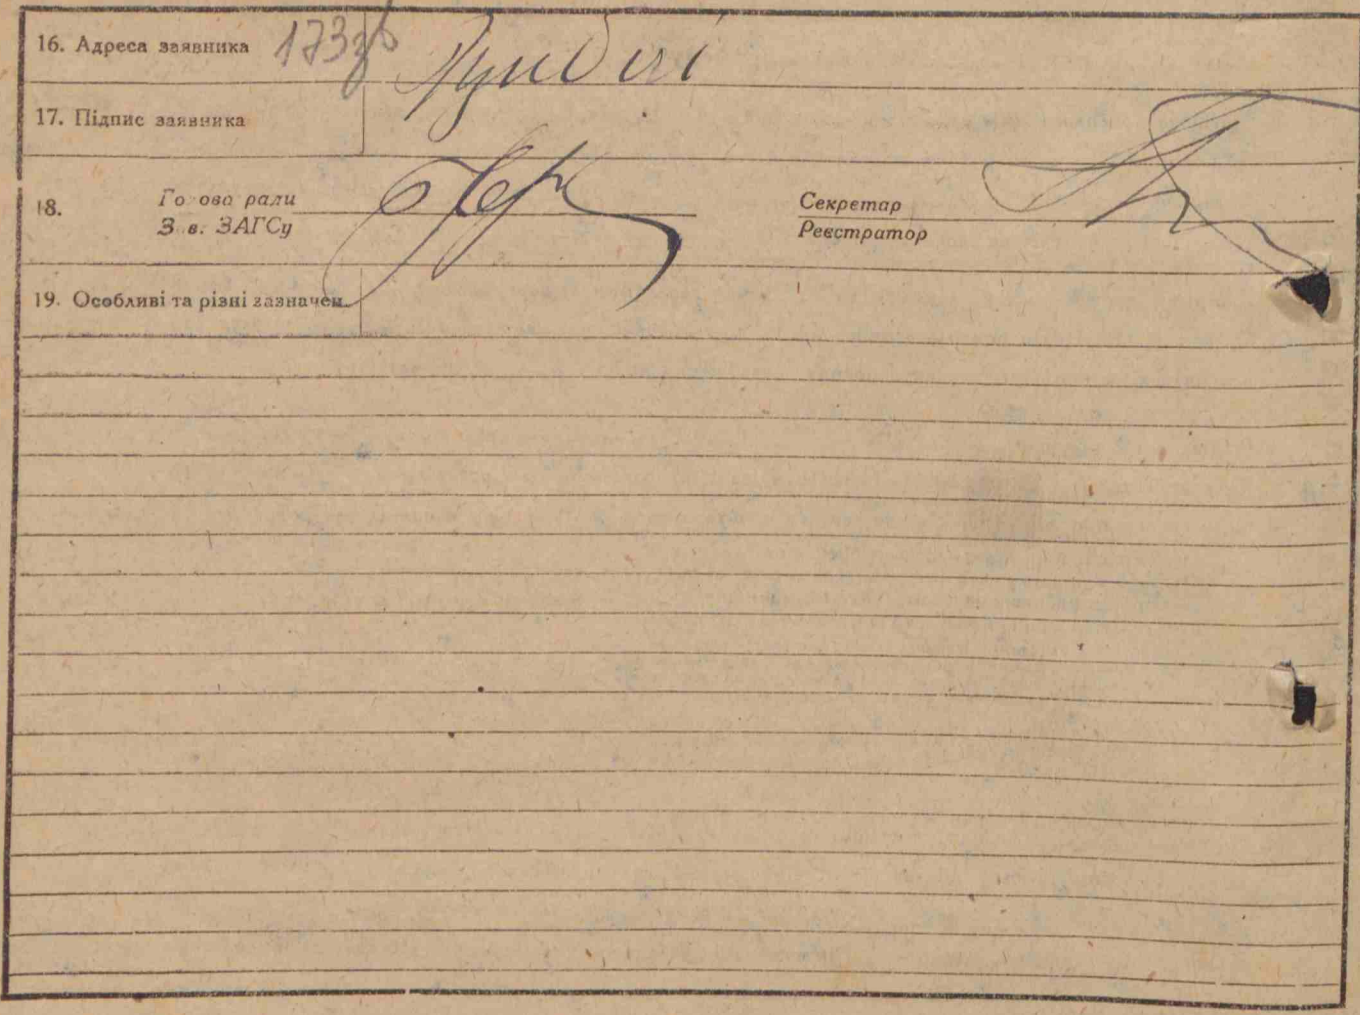 16. Адреса заявника 173зв
17. Підпис заявника
18. Го ова рали Секретар
З в. ЗАГСу Реєстратор
19. Особливі та різні зазначен.